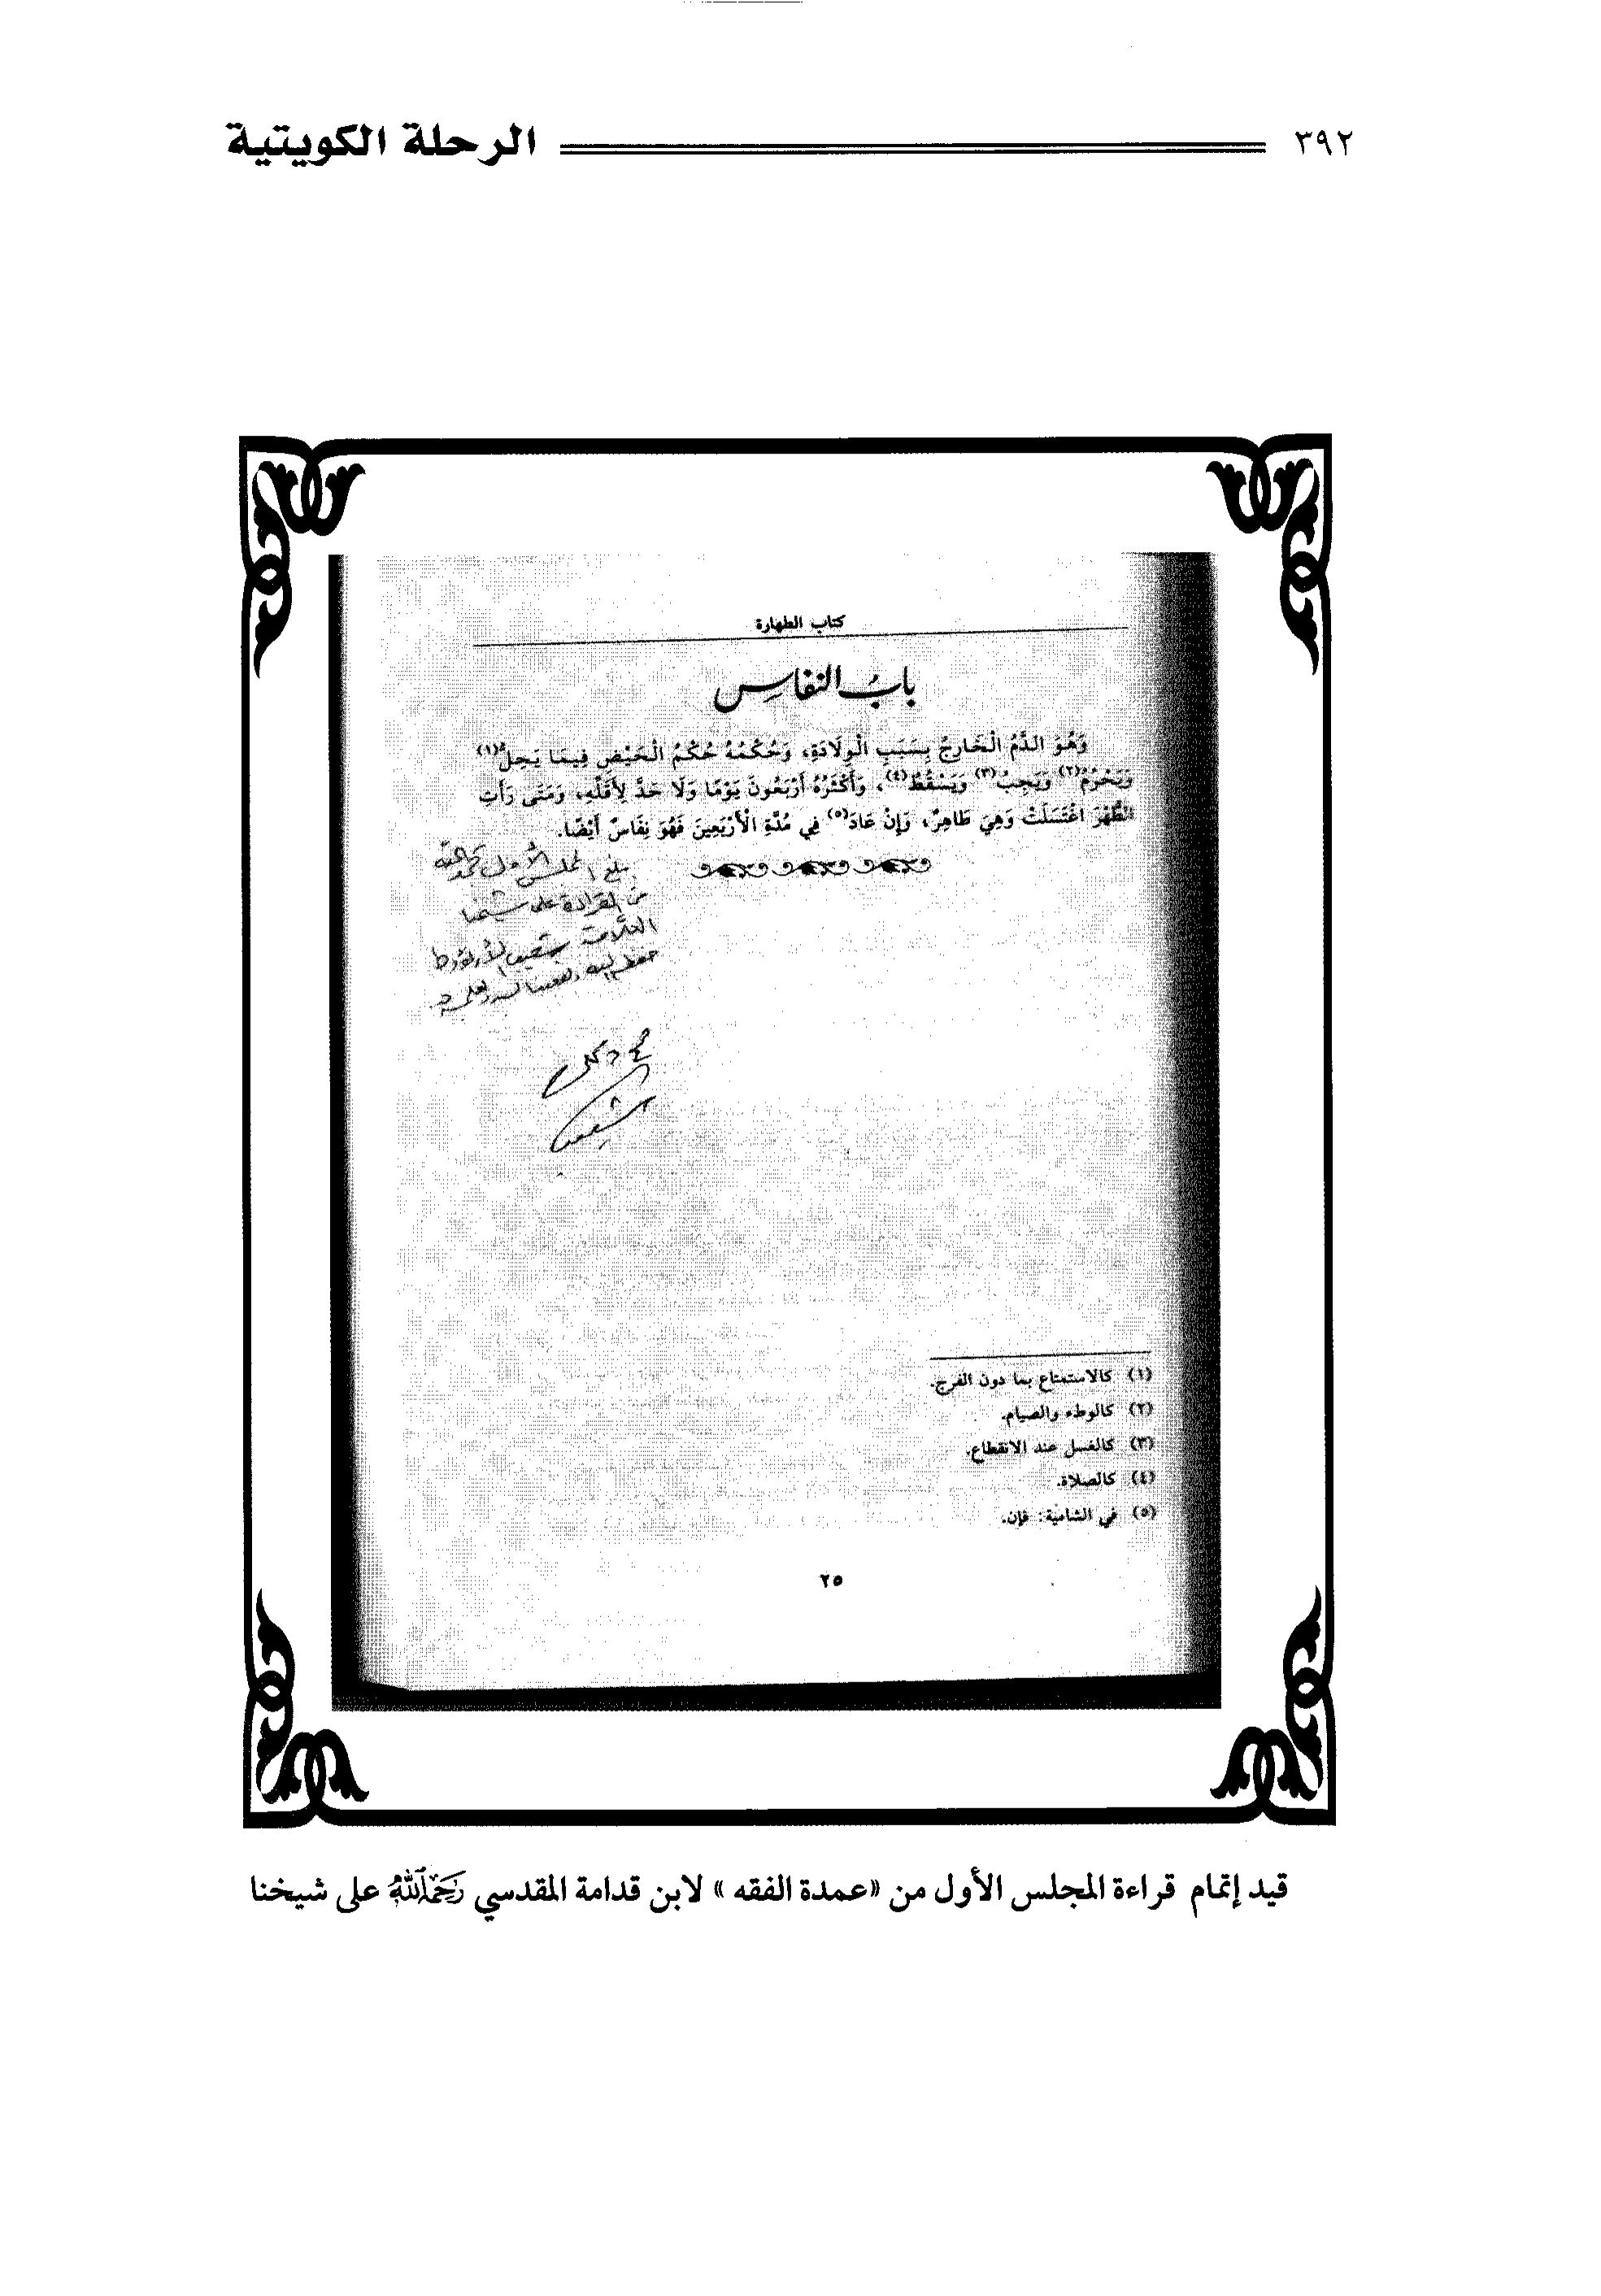 ٣٩٢ الرحلة الكويتية
كتاب الطهارة
بابُ النفاس
وَهُوَ الدَّمُ الْخَارِجُ بِسَبَبِ الْوِلَادَةِ، وَحُكْمُهُ حُكْمُ الْحَيْضِ فِيمَا يَحِلُّ(١)
وَيَحْرُمُ(٢) وَيَجِبُ(٣) وَيَسْقُطُ(٤)، وَأَكْثَرُهُ أَرْبَعُونَ يَوْمًا وَلَا حَدَّ لِأَقَلِّهِ، وَمَتَى رَأَتِ
الطُّهْرَ اغْتَسَلَتْ وَهِيَ طَاهِرٌ، وَإِنْ عَادَ(٥) فِي مُدَّةِ الْأَرْبَعِينَ فَهُوَ نِفَاسٌ أَيْضًا.
بلغ المجلس الأول بحمد الله
من القراءة على شيخنا
العلامة شعيب الأرنؤوط
حفظه الله ونفعنا به
(١) كالاستمتاع بما دون الفرج.
(٢) كالوطء والصيام.
(٣) كالغسل عند الانقطاع.
(٤) كالصلاة.
(٥) في الشامية: فإن.
٢٥
قيد إتمام قراءة المجلس الأول من «عمدة الفقه» لابن قدامة المقدسي رَحِمَهُ اللهُ على شيخنا